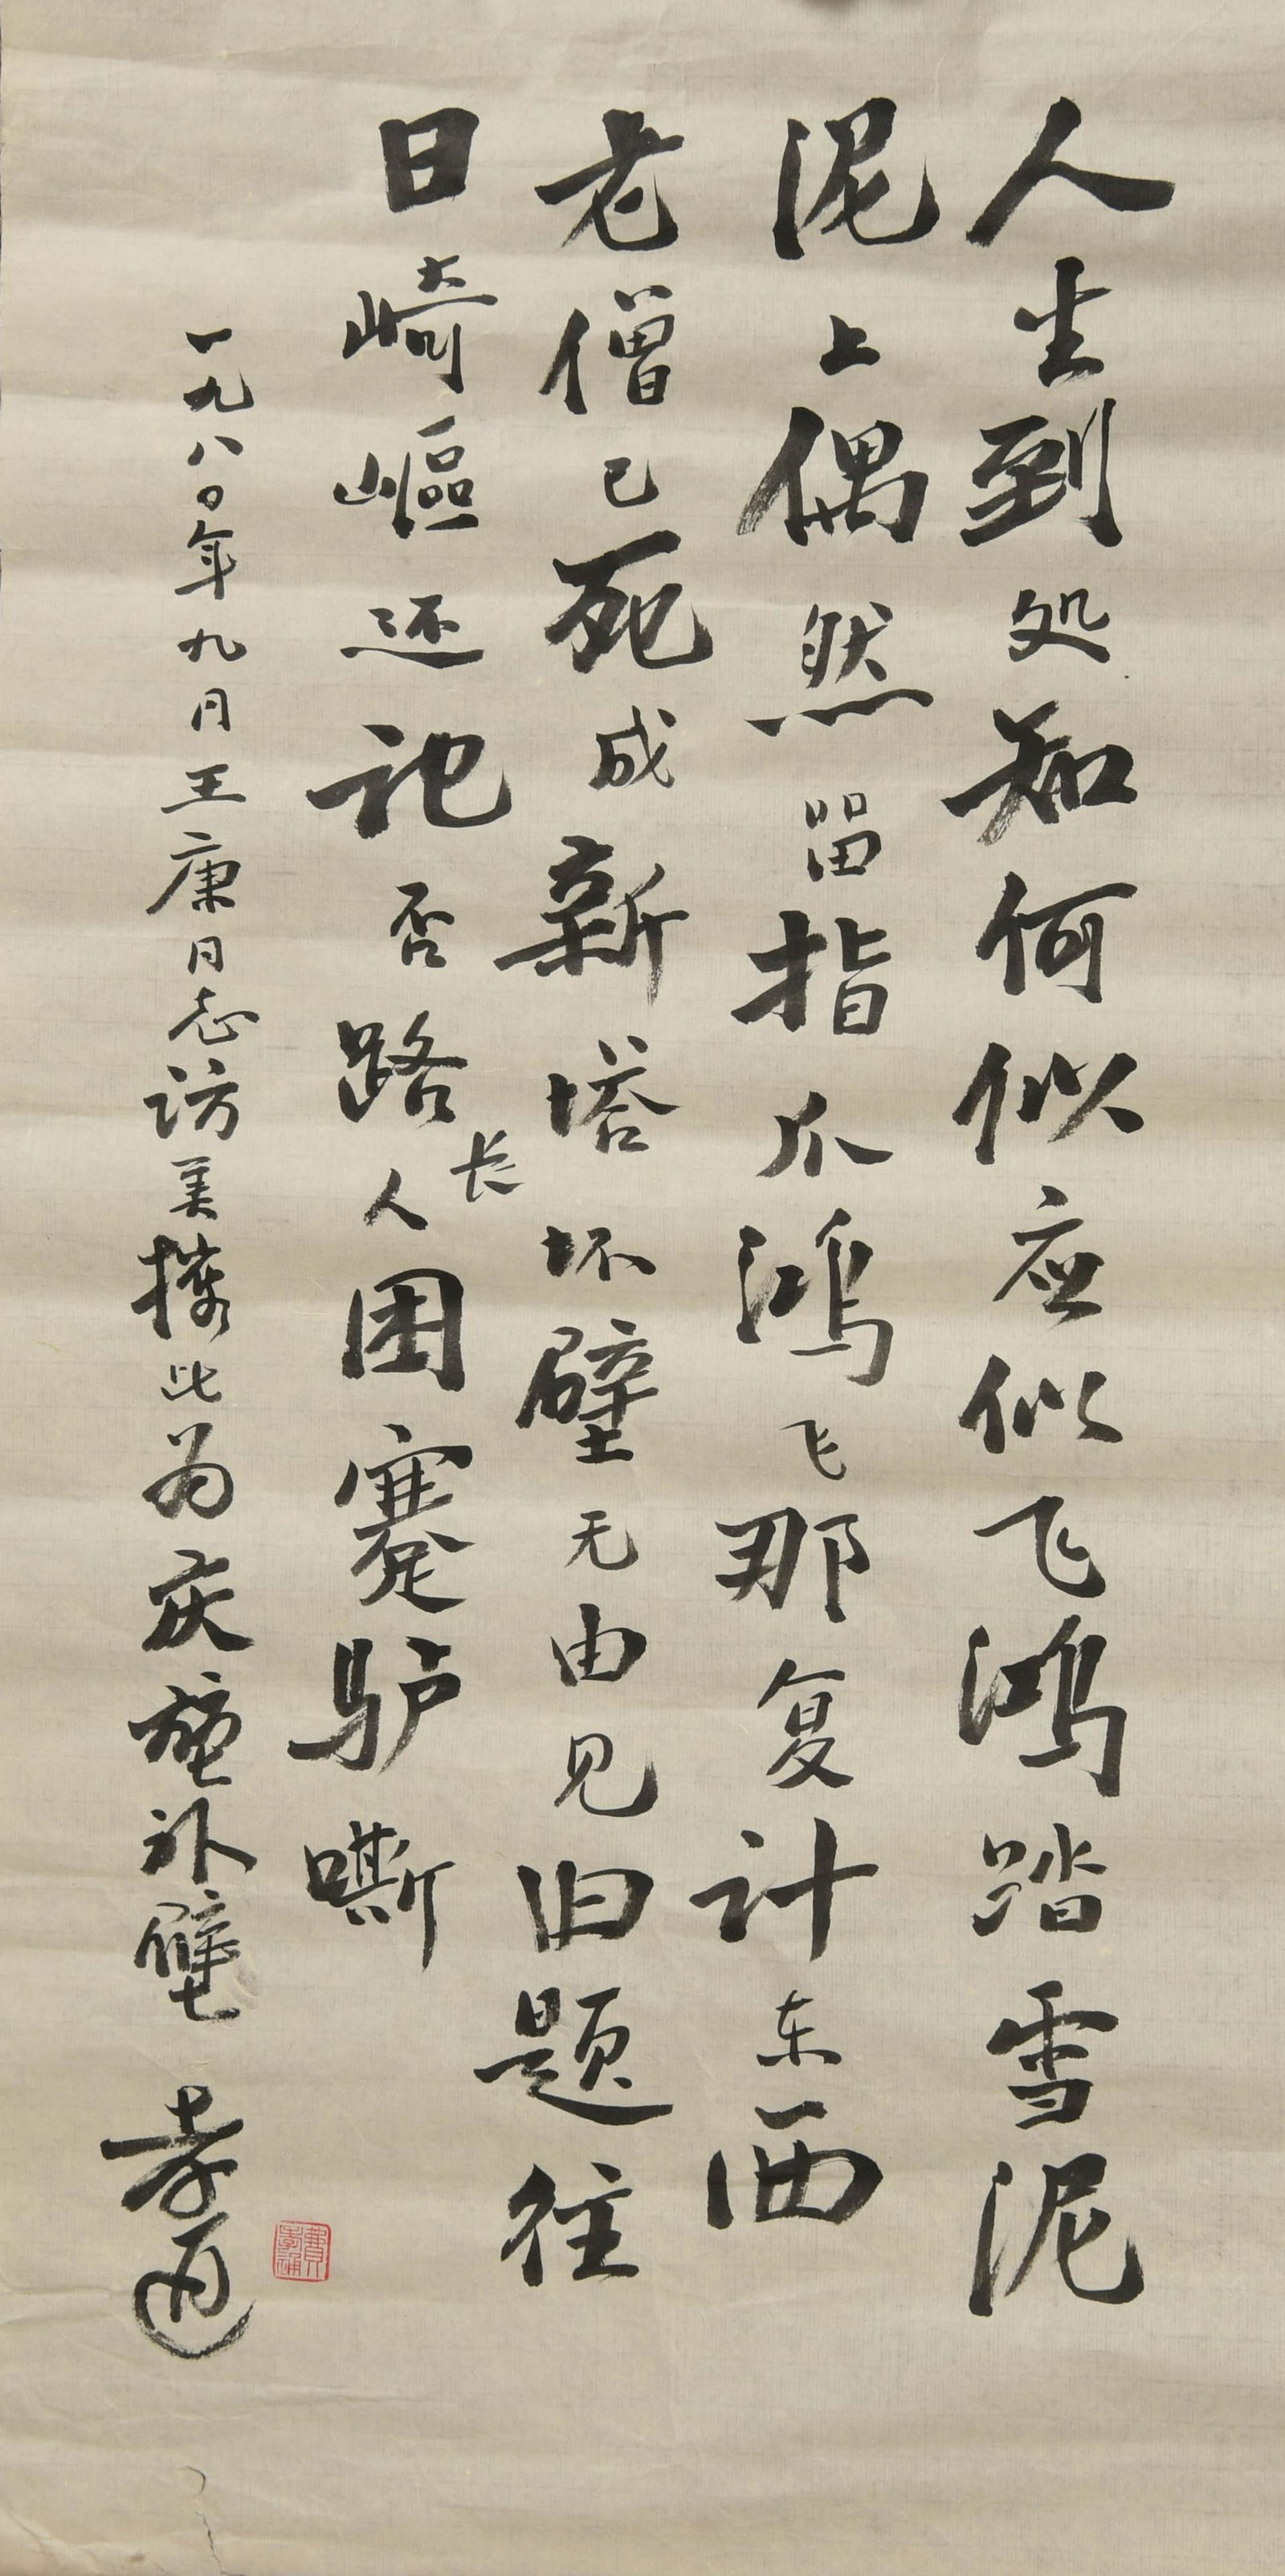 人生到处知何似应似飞鸿踏雪泥
泥上偶然留指爪鸿飞那复计东西
老僧已死成新塔坏壁无由见旧题往
日崎岖还记否路长人困蹇驴嘶
一九八〇年九月王康同志访美携此为庆堃补壁
孝通
費孝通